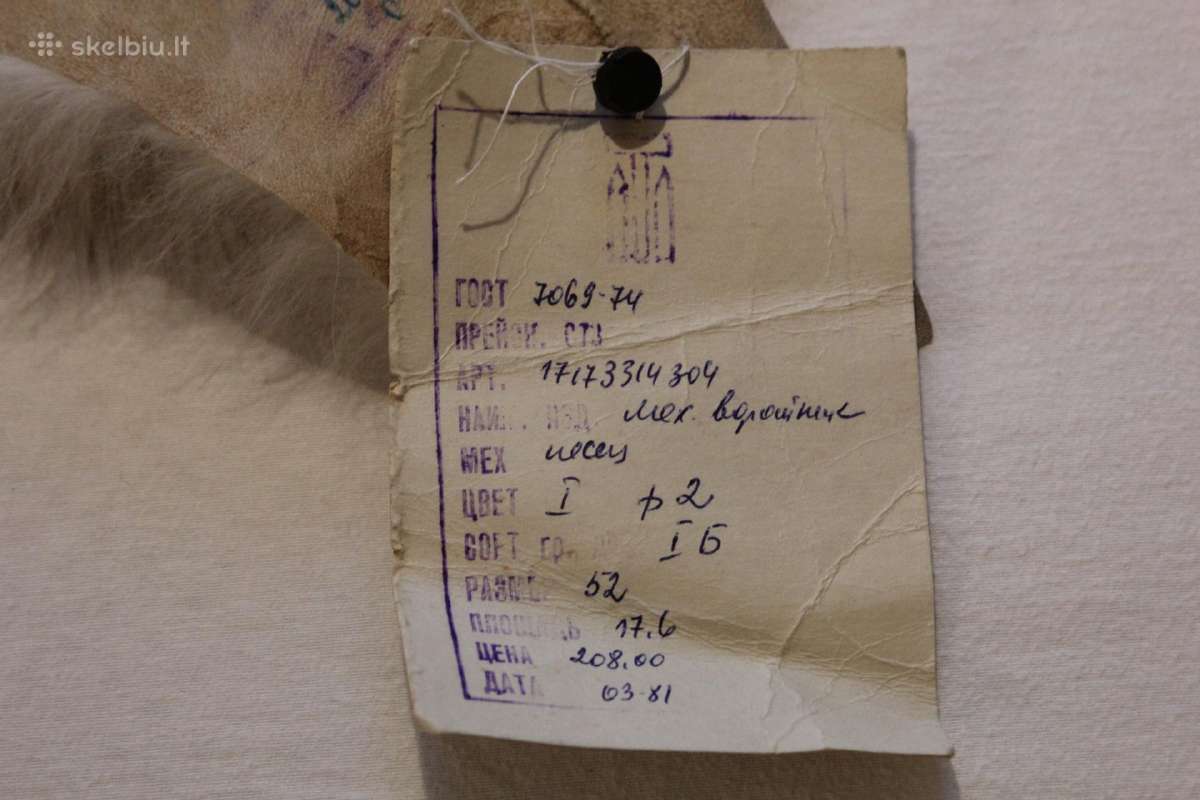 skelbiu.lt
ГОСТ 7069-74
ПРЕЙСК. СТР
АРТ. 17173314304
НАИМ. ИЗД. мех. воротник
МЕХ песец
ЦВЕТ I р 2
СОРТ гр. I Б
РАЗМЕР 52
ПЛОЩАДЬ 17.6
ЦЕНА 208.00
ДАТА 03-81